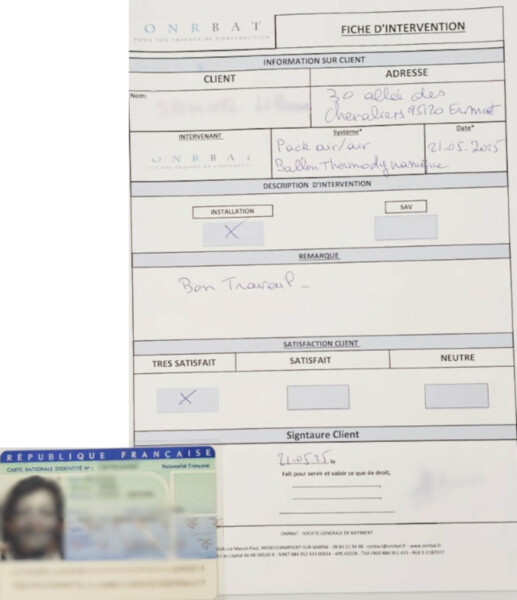 ONRBAT
FICHE D'INTERVENTION
INFORMATION SUR CLIENT
CLIENT
ADRESSE
Nom:
30 allée des
Chevaliers 95120 Ermont
INTERVENANT
Système*
Date*
ONRBAT
Pack air/air
Ballon Thermodynamique
21.05.2025
DESCRIPTION D'INTERVENTION
INSTALLATION
SAV
X
REMARQUE
Bon Travail
SATISFACTION CLIENT
TRES SATISFAIT
SATISFAIT
NEUTRE
X
Signtaure Client
Fait pour servir et valoir ce que de droit,
RÉPUBLIQUE FRANÇAISE
CARTE NATIONALE D'IDENTITÉ N° :
Nationalité Française
ONRBAT - SOCIETE GENERALE DE BATIMENT